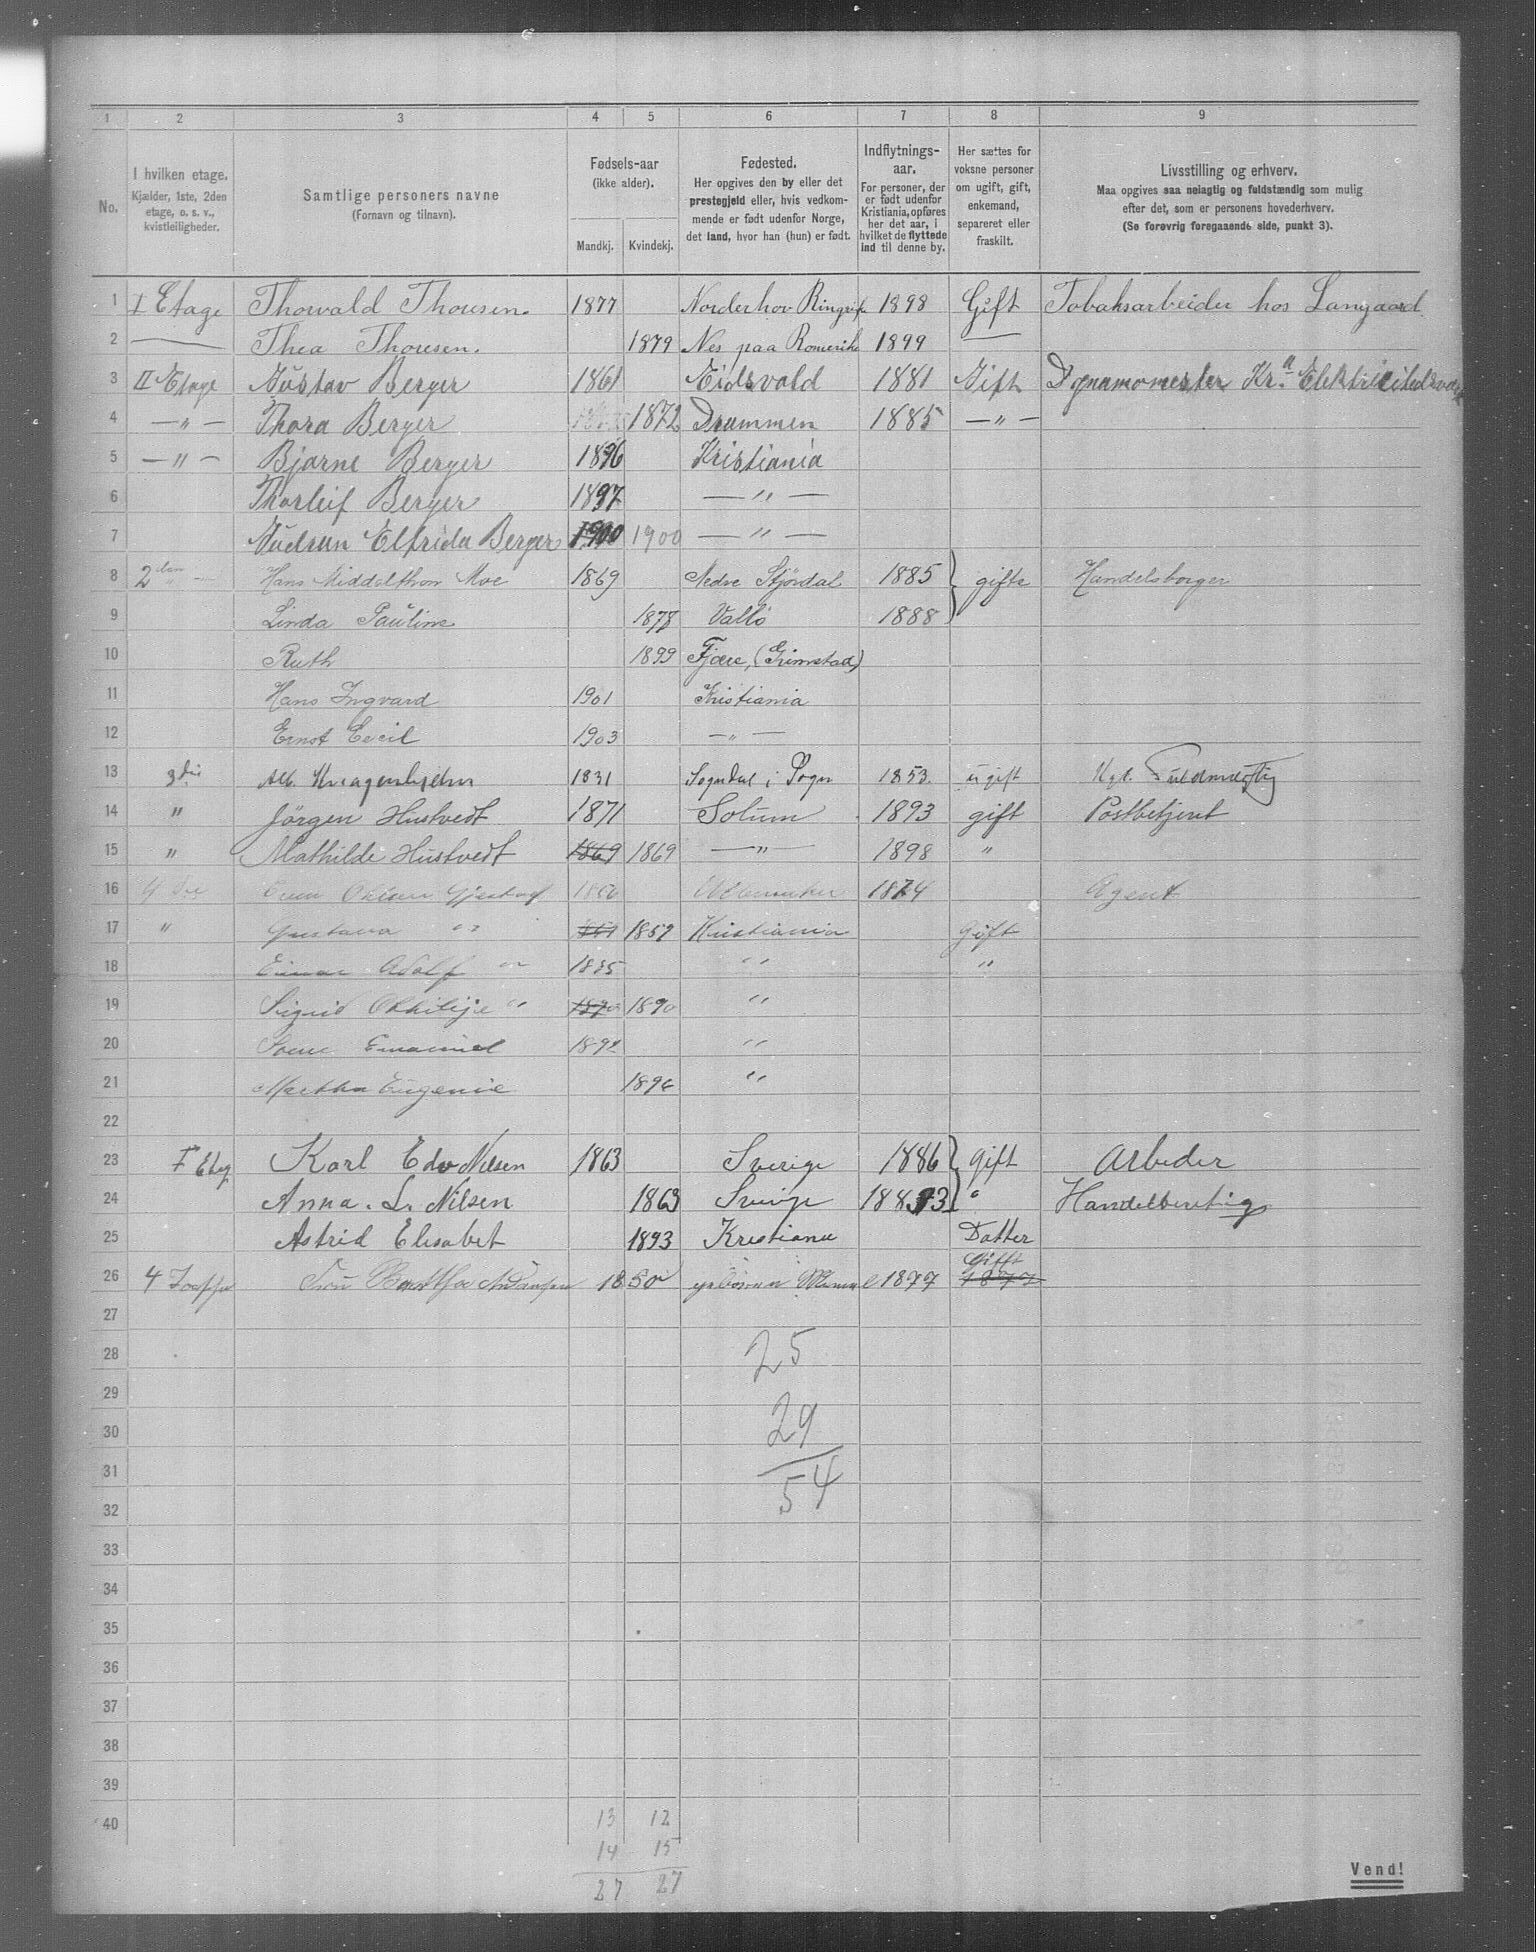 1 2 3 4 5 6 7 8 9
No.
I hvilken etage.
Kjælder, 1ste, 2den
etage, o. s. v.,
kvistleiligheder.
Samtlige personers navne
(Fornavn og tilnavn).
Fødsels-aar
(ikke alder).
Mandkj. Kvindekj.
Fødested.
Her opgives den by eller det
prestegjeld eller, hvis vedkom-
mende er født udenfor Norge,
det land, hvor han (hun) er født.
Indflytnings-
aar.
For personer, der
er født udenfor
Kristiania, opføres
her det aar, i
hvilket de flyttede
ind til denne by.
Her sættes for
voksne personer
om ugift, gift,
enkemand,
separeret eller
fraskilt.
Livsstilling og erhverv.
Maa opgives saa nøiagtig og fuldstændig som mulig
efter det, som er personens hovederhverv.
(Se forøvrig foregaaende side, punkt 3).
1 I Etage Thorvald Thoresen. 1877 Norderhov Ringrike 1898 Gift Tobaksarbeider hos Langaard.
2 Thea Thoresen. 1879 Nes paa Romerike 1899 —
3 II Etage Gustav Berger 1861 Eidsvold 1881 Gift Dynamomester Kr.a Elektricitedsværk
4 — " — Thora Berger 1872 Drammen 1885 — " —
5 — " — Bjarne Berger 1896 Kristiania
6 Thorleif Berger 1897 — " —
7 Gudrun Elfrida Berger 1900 1900 — " —
8 2den Hans Middelthon Moe 1869 Nedre Stjørdal 1885 gifte Handelsborger
9 Linda Pauline 1878 Vallö 1888
10 Ruth 1899 Fjære, (Grimstad)
11 Hans Ingvard 1901 Kristiania
12 Ernst Cecil 1903 — " —
13 3die Alb. Kragenhjelm 1831 Sogndal i Sogn 1853. ugift Kgl. Fuldmægtig
14 " Jörgen Hustvedt 1871 Solum 1893 gift Postbetjent
15 " Mathilde Hustvedt 1869 1869 — " — 1898 "
16 4de 1874 Agent
17 " Gustava " 1859 Kristiania Gift
18 Einar Adolf " " "
19 Sigrid " 1890 1890 "
20 Emanuel 1892 "
21 Martha Eugenie 1896 "
22
23 I Etag Karl Edv Nilsen 1863 Sverige 1886 gift Arbeder
24 Anna. L. Nilsen 1863 Sverige 1883 " Handelberetig
25 Astrid Elisabet 1893 Kristiana Datter
26 4 1850 1877 Gifft 1877
27
28 25
29
30 29
31
32 54
33
34
35
36
37
38
39
40 13 12
14 15
27 27
Vend!